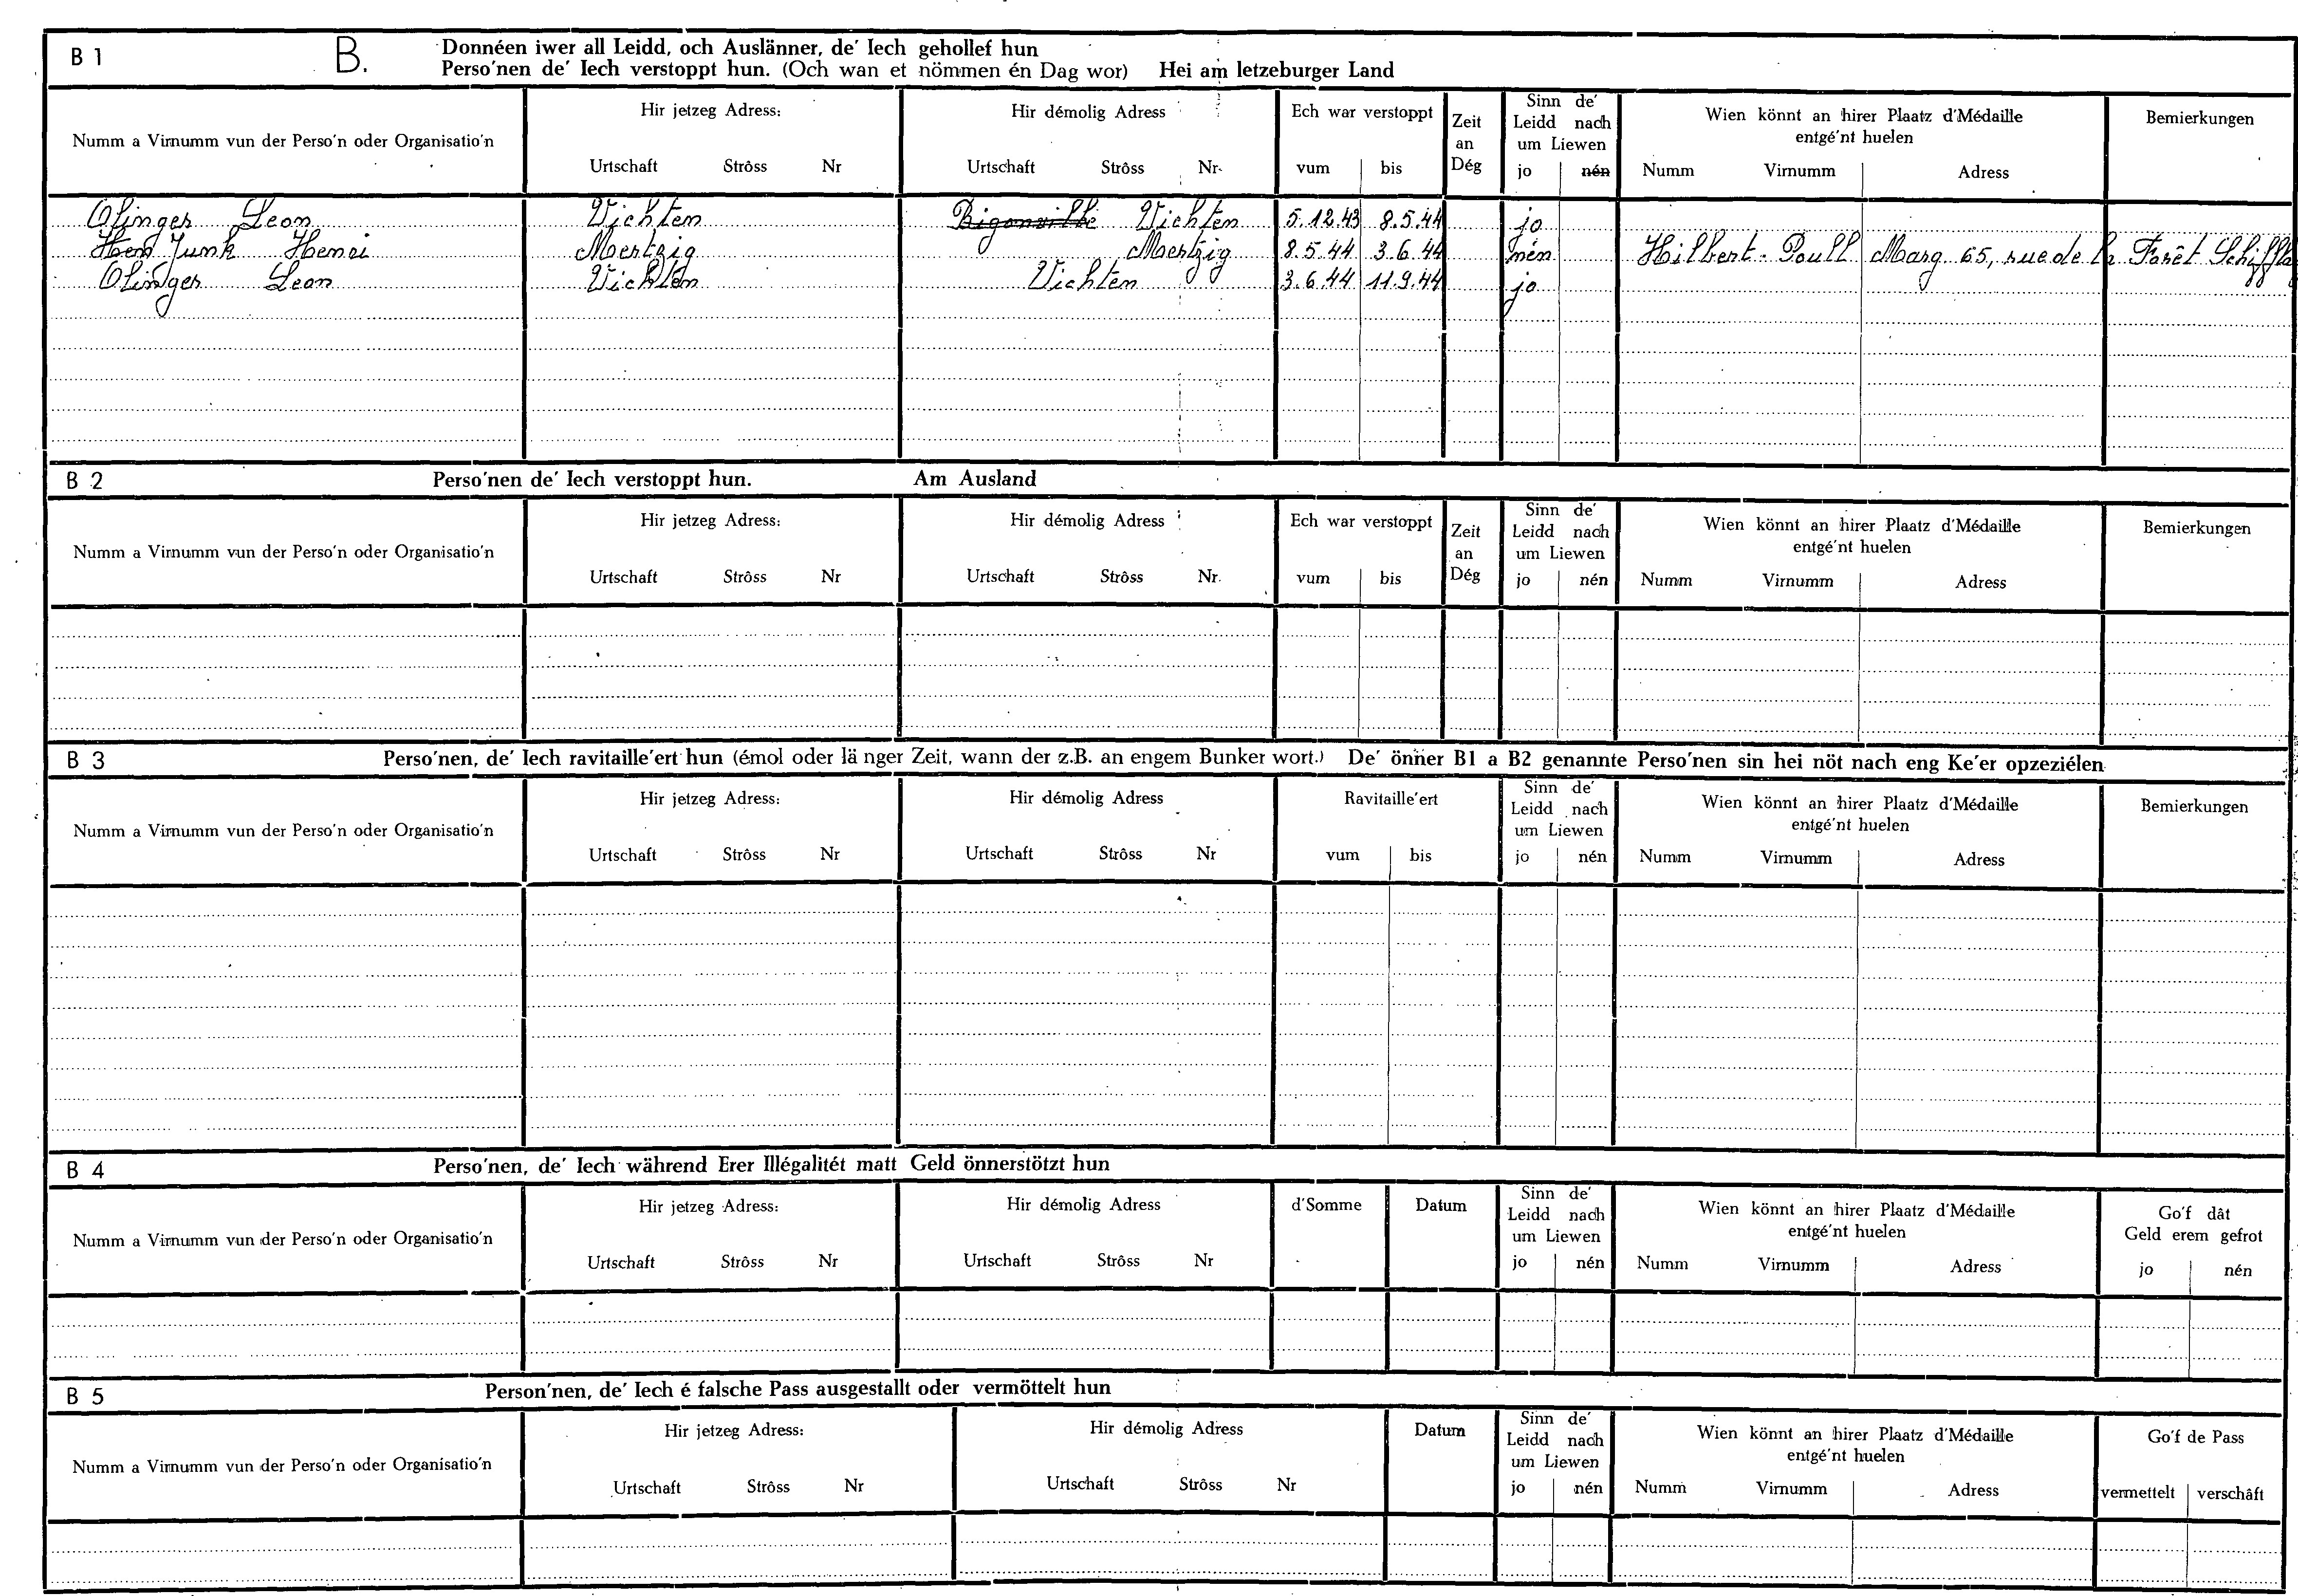 B 1 B. Donnéen iwer all Leidd, och Auslänner, de' Iech gehollef hun
Perso'nen de' Iech verstoppt hun. (Och wan et nömmen én Dag wor) Hei am letzeburger Land
Numm a Virnumm vun der Perso'n oder Organisatio'n
Hir jetzeg Adress:
Urtschaft Strôss Nr
Hir démolig Adress
Urtschaft Strôss Nr.
Ech war verstoppt
vum bis
Zeit
an
Dég
Sinn de'
Leidd nach
um Liewen
jo nén
Wien könnt an hirer Plaatz d'Médaille
entgé'nt huelen
Numm Virnumm Adress
Bemierkungen
Olinger Leon Vichten Bigonville Vichten 5.12.43 8.5.44 jo
Junk Henri Mertzig Mertzig 8.5.44 3.6.44 nén Hilbert-Poull Marg 65, rue de la Forêt
Olinger Leon Vichten Vichten 3.6.44 11.9.44 jo
B 2 Perso'nen de' Iech verstoppt hun. Am Ausland
Numm a Virnumm vun der Perso'n oder Organisatio'n
Hir jetzeg Adress:
Urtschaft Strôss Nr
Hir démolig Adress
Urtschaft Strôss Nr.
Ech war verstoppt
vum bis
Zeit
an
Dég
Sinn de'
Leidd nach
um Liewen
jo nén
Wien könnt an hirer Plaatz d'Médaille
entgé'nt huelen
Numm Virnumm Adress
Bemierkungen
B 3 Perso'nen, de' Iech ravitaille'ert hun (émol oder lä nger Zeit, wann der z.B. an engem Bunker wort.) De' önner B1 a B2 genannte Perso'nen sin hei nöt nach eng Ke'er opzeziélen
Numm a Virnumm vun der Perso'n oder Organisatio'n
Hir jetzeg Adress:
Urtschaft Strôss Nr
Hir démolig Adress
Urtschaft Strôss Nr
Ravitaille'ert
vum bis
Sinn de'
Leidd nach
um Liewen
jo nén
Wien könnt an hirer Plaatz d'Médaille
entgé'nt huelen
Numm Virnumm Adress
Bemierkungen
B 4 Perso'nen, de' Iech während Erer Illégalitét matt Geld önnerstötzt hun
Numm a Virnumm vun der Perso'n oder Organisatio'n
Hir jetzeg Adress:
Urtschaft Strôss Nr
Hir démolig Adress
Urtschaft Strôss Nr
d'Somme
Datum
Sinn de'
Leidd nach
um Liewen
jo nén
Wien könnt an hirer Plaatz d'Médaille
entgé'nt huelen
Numm Virnumm Adress
Go'f dât
Geld erem gefrot
jo nén
B 5 Person'nen, de' Iech é falsche Pass ausgestallt oder vermöttelt hun
Numm a Virnumm vun der Perso'n oder Organisatio'n
Hir jetzeg Adress:
Urtschaft Strôss Nr
Hir démolig Adress
Urtschaft Strôss Nr
Datum
Sinn de'
Leidd nach
um Liewen
jo nén
Wien könnt an hirer Plaatz d'Médaille
entgé'nt huelen
Numm Virnumm Adress
Go'f de Pass
vermettelt verschâft